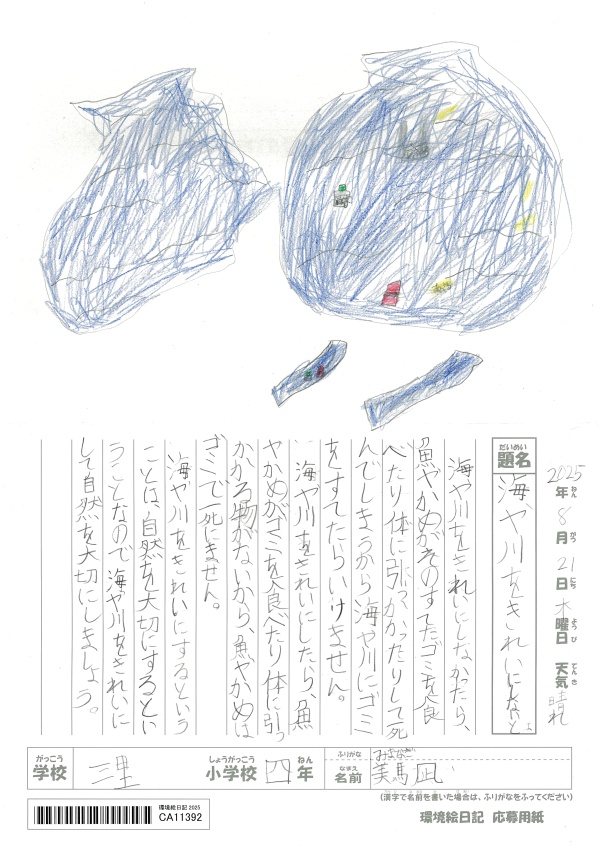 2025年8月21日木曜日 天気晴れ
ねん がつ にち ようび てんき
だいめい
題名
海や川をきれいにしないと
海や川をきれいにしなかったら、
魚やかめがそのすてたゴミを食
べたり体に引っかかったりして死
んでしまうから海や川にゴミ
をすてたらいけません。
海や川をきれいにしたら、魚
やかめがゴミを食べたり体に引っ
かかる物がないから、魚やかめは
ゴミで死にません。
海や川をきれいにするという
ことは、自然を大切にするとい
うことなので海や川をきれいに
して自然を大切にしましょう。
がっこう しょうがっこう ねん ふりがな
学校 三里 小学校 四年
なまえ
名前 美馬凪
(漢字で名前を書いた場合は、ふりがなをふってください)
環境絵日記 2025
CA11392
環境絵日記 応募用紙